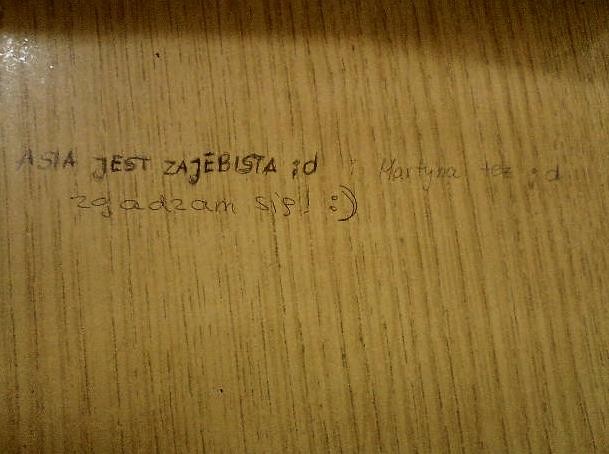 ASIA JEST ZAJEBISTA ;d i Martyna też ;d
zgadzam się! :)